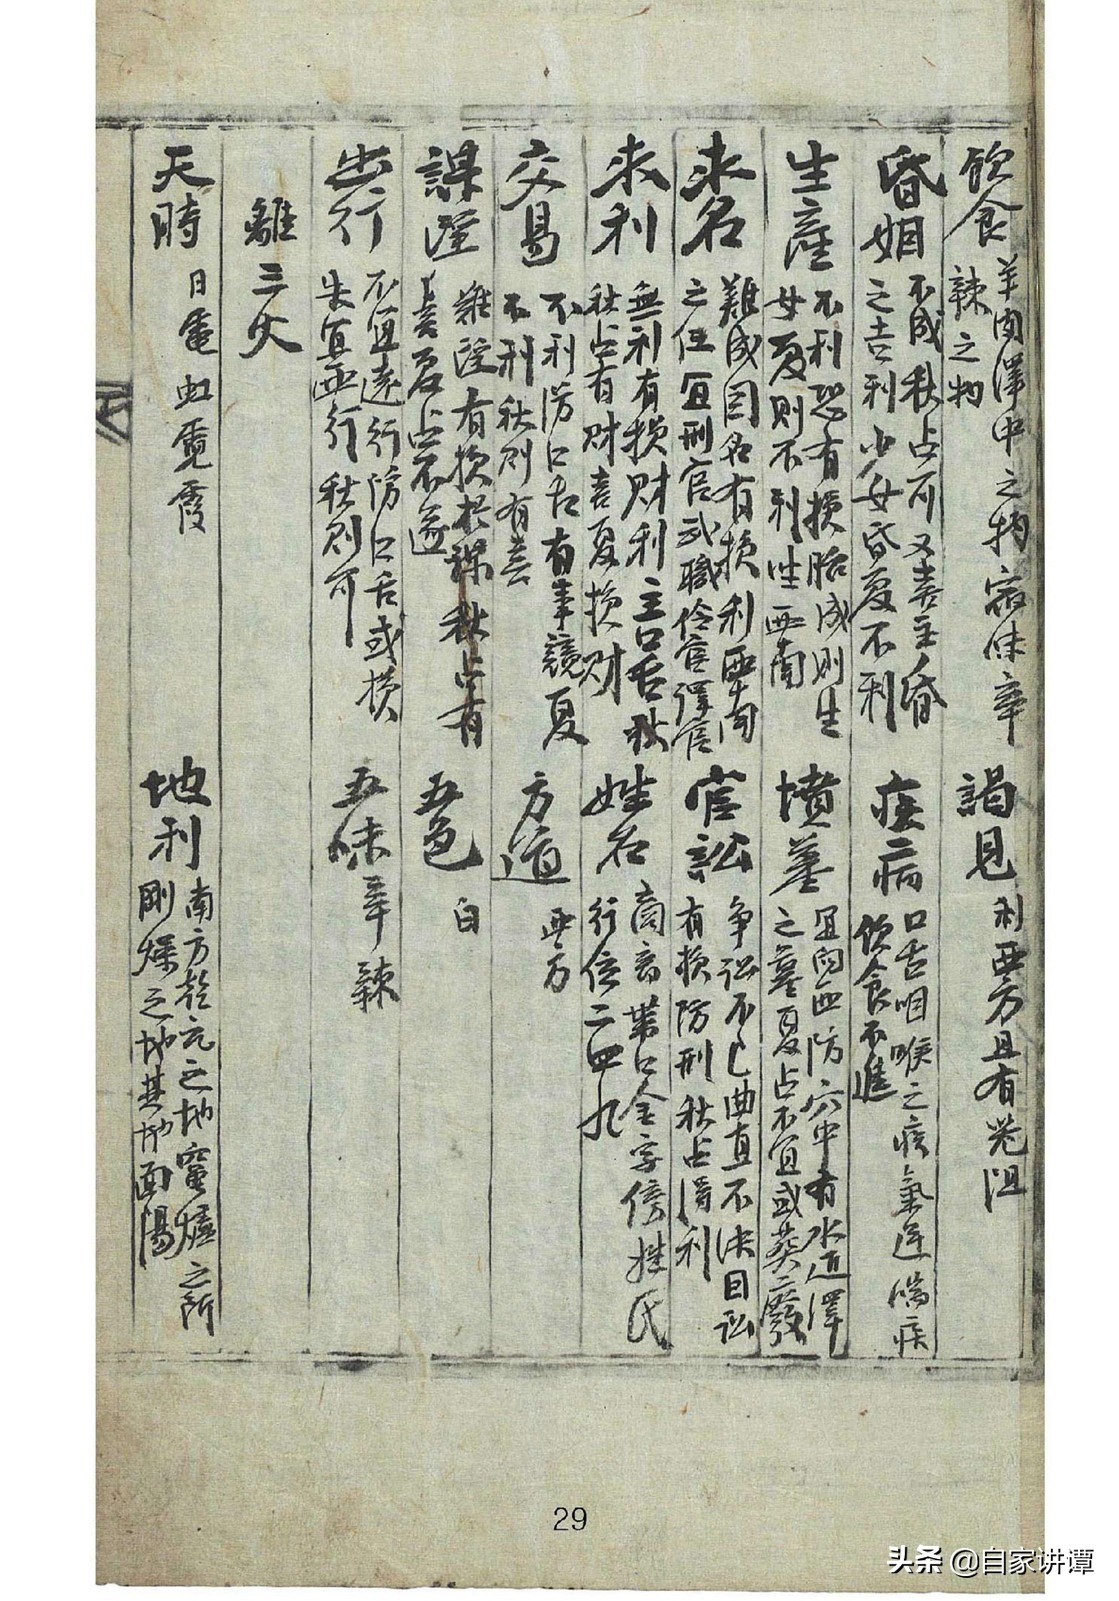 飲食 羊肉澤中之物宿味辛
辣之物
謁見 利西方且有咒詛
昏姻 不成秋占可又喜主昏
之吉利少女昏夏不利
疾病 口舌咽喉之疾氣逆喘疾
飲食不進
生產 不利恐有損胎或則生
女夏則不利坐西南
墳墓 宜向西防穴中有水近澤
之墓夏占不宜或葬廢
求名 難成因名有損利西南
之任宜刑官武職伶官譯官
官訟 爭訟不已曲直不決因訟
有損防刑秋占得利
求利 無利有損財利主口舌秋
秋占有財喜夏損財
姓名 商音帶口金字傍姓氏
行位二四九
交易 不利防口舌有爭競夏
不利秋則有喜
方道 西方
謀望 難望有損於謀秋占有
喜夏占不遂
五色 白
出行 不宜遠行防口舌或損
失宜西行秋則可
五味 辛辣
離三火
天時 日電虹霓霞
地利 南方乾亢之地窑爐之所
剛燥之地其地面陽
29
头条 @自家讲谭